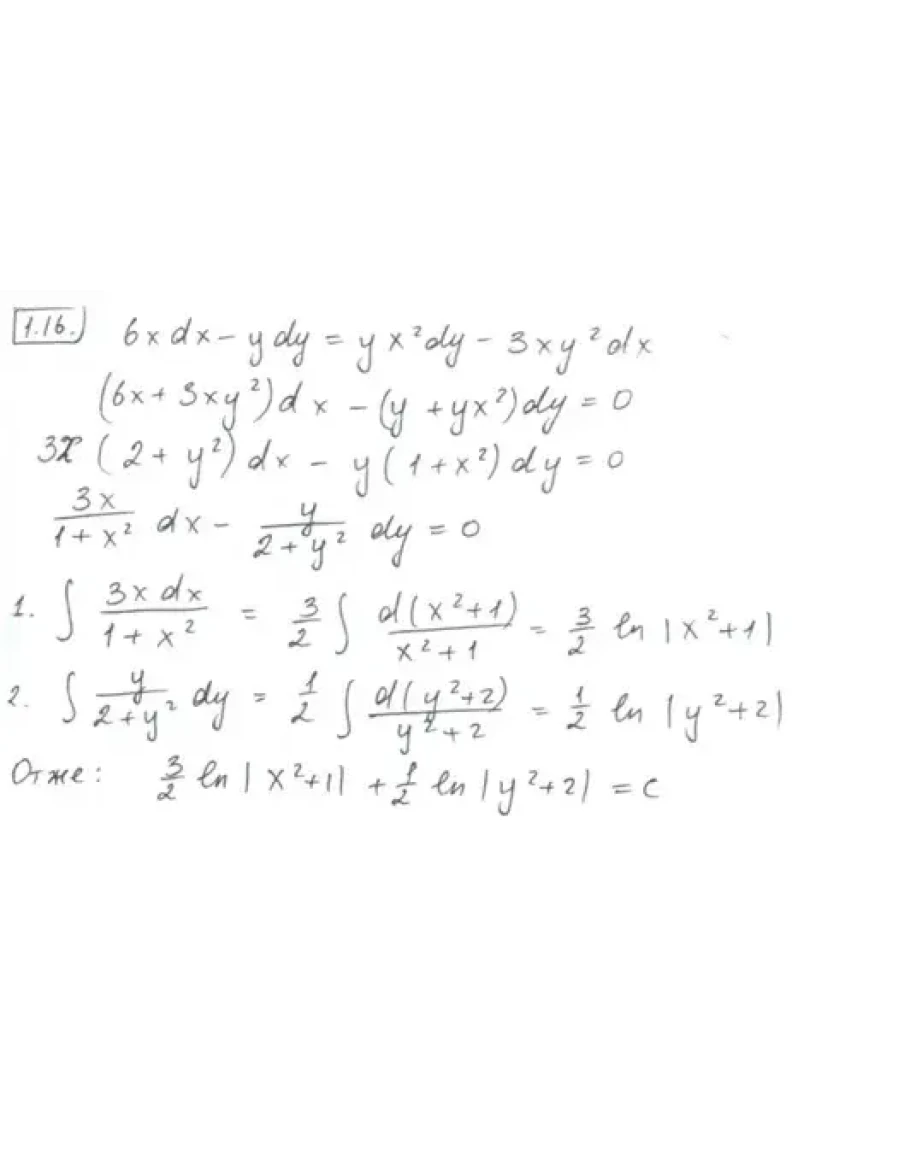 1.16. 6x dx - y dy = y x² dy - 3xy² dx
(6x + 3xy²) dx - (y + yx²) dy = 0
3x (2 + y²) dx - y (1 + x²) dy = 0
3x/(1 + x²) dx - y/(2 + y²) dy = 0
1. ∫ 3x dx/(1 + x²) = 3/2 ∫ d(x²+1)/(x²+1) = 3/2 ln |x²+1|
2. ∫ y/(2+y²) dy = 1/2 ∫ d(y²+2)/(y²+2) = 1/2 ln |y²+2|
Отже: 3/2 ln |x²+1| + 1/2 ln |y²+2| = c